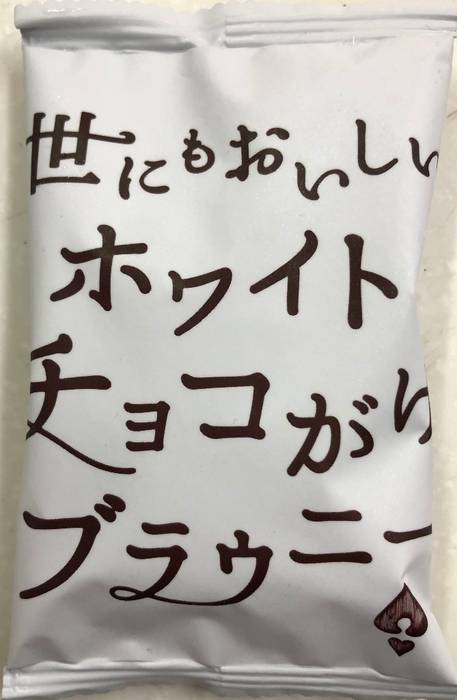 世にもおいしい
ホワイト
チョコがけ
ブラウニー